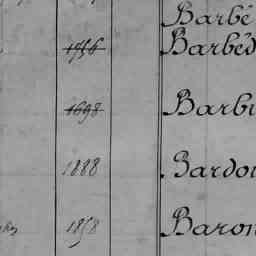 Barbé
1756 Barbéd
1698 Barbi
1888 Bardou
1858 Baron